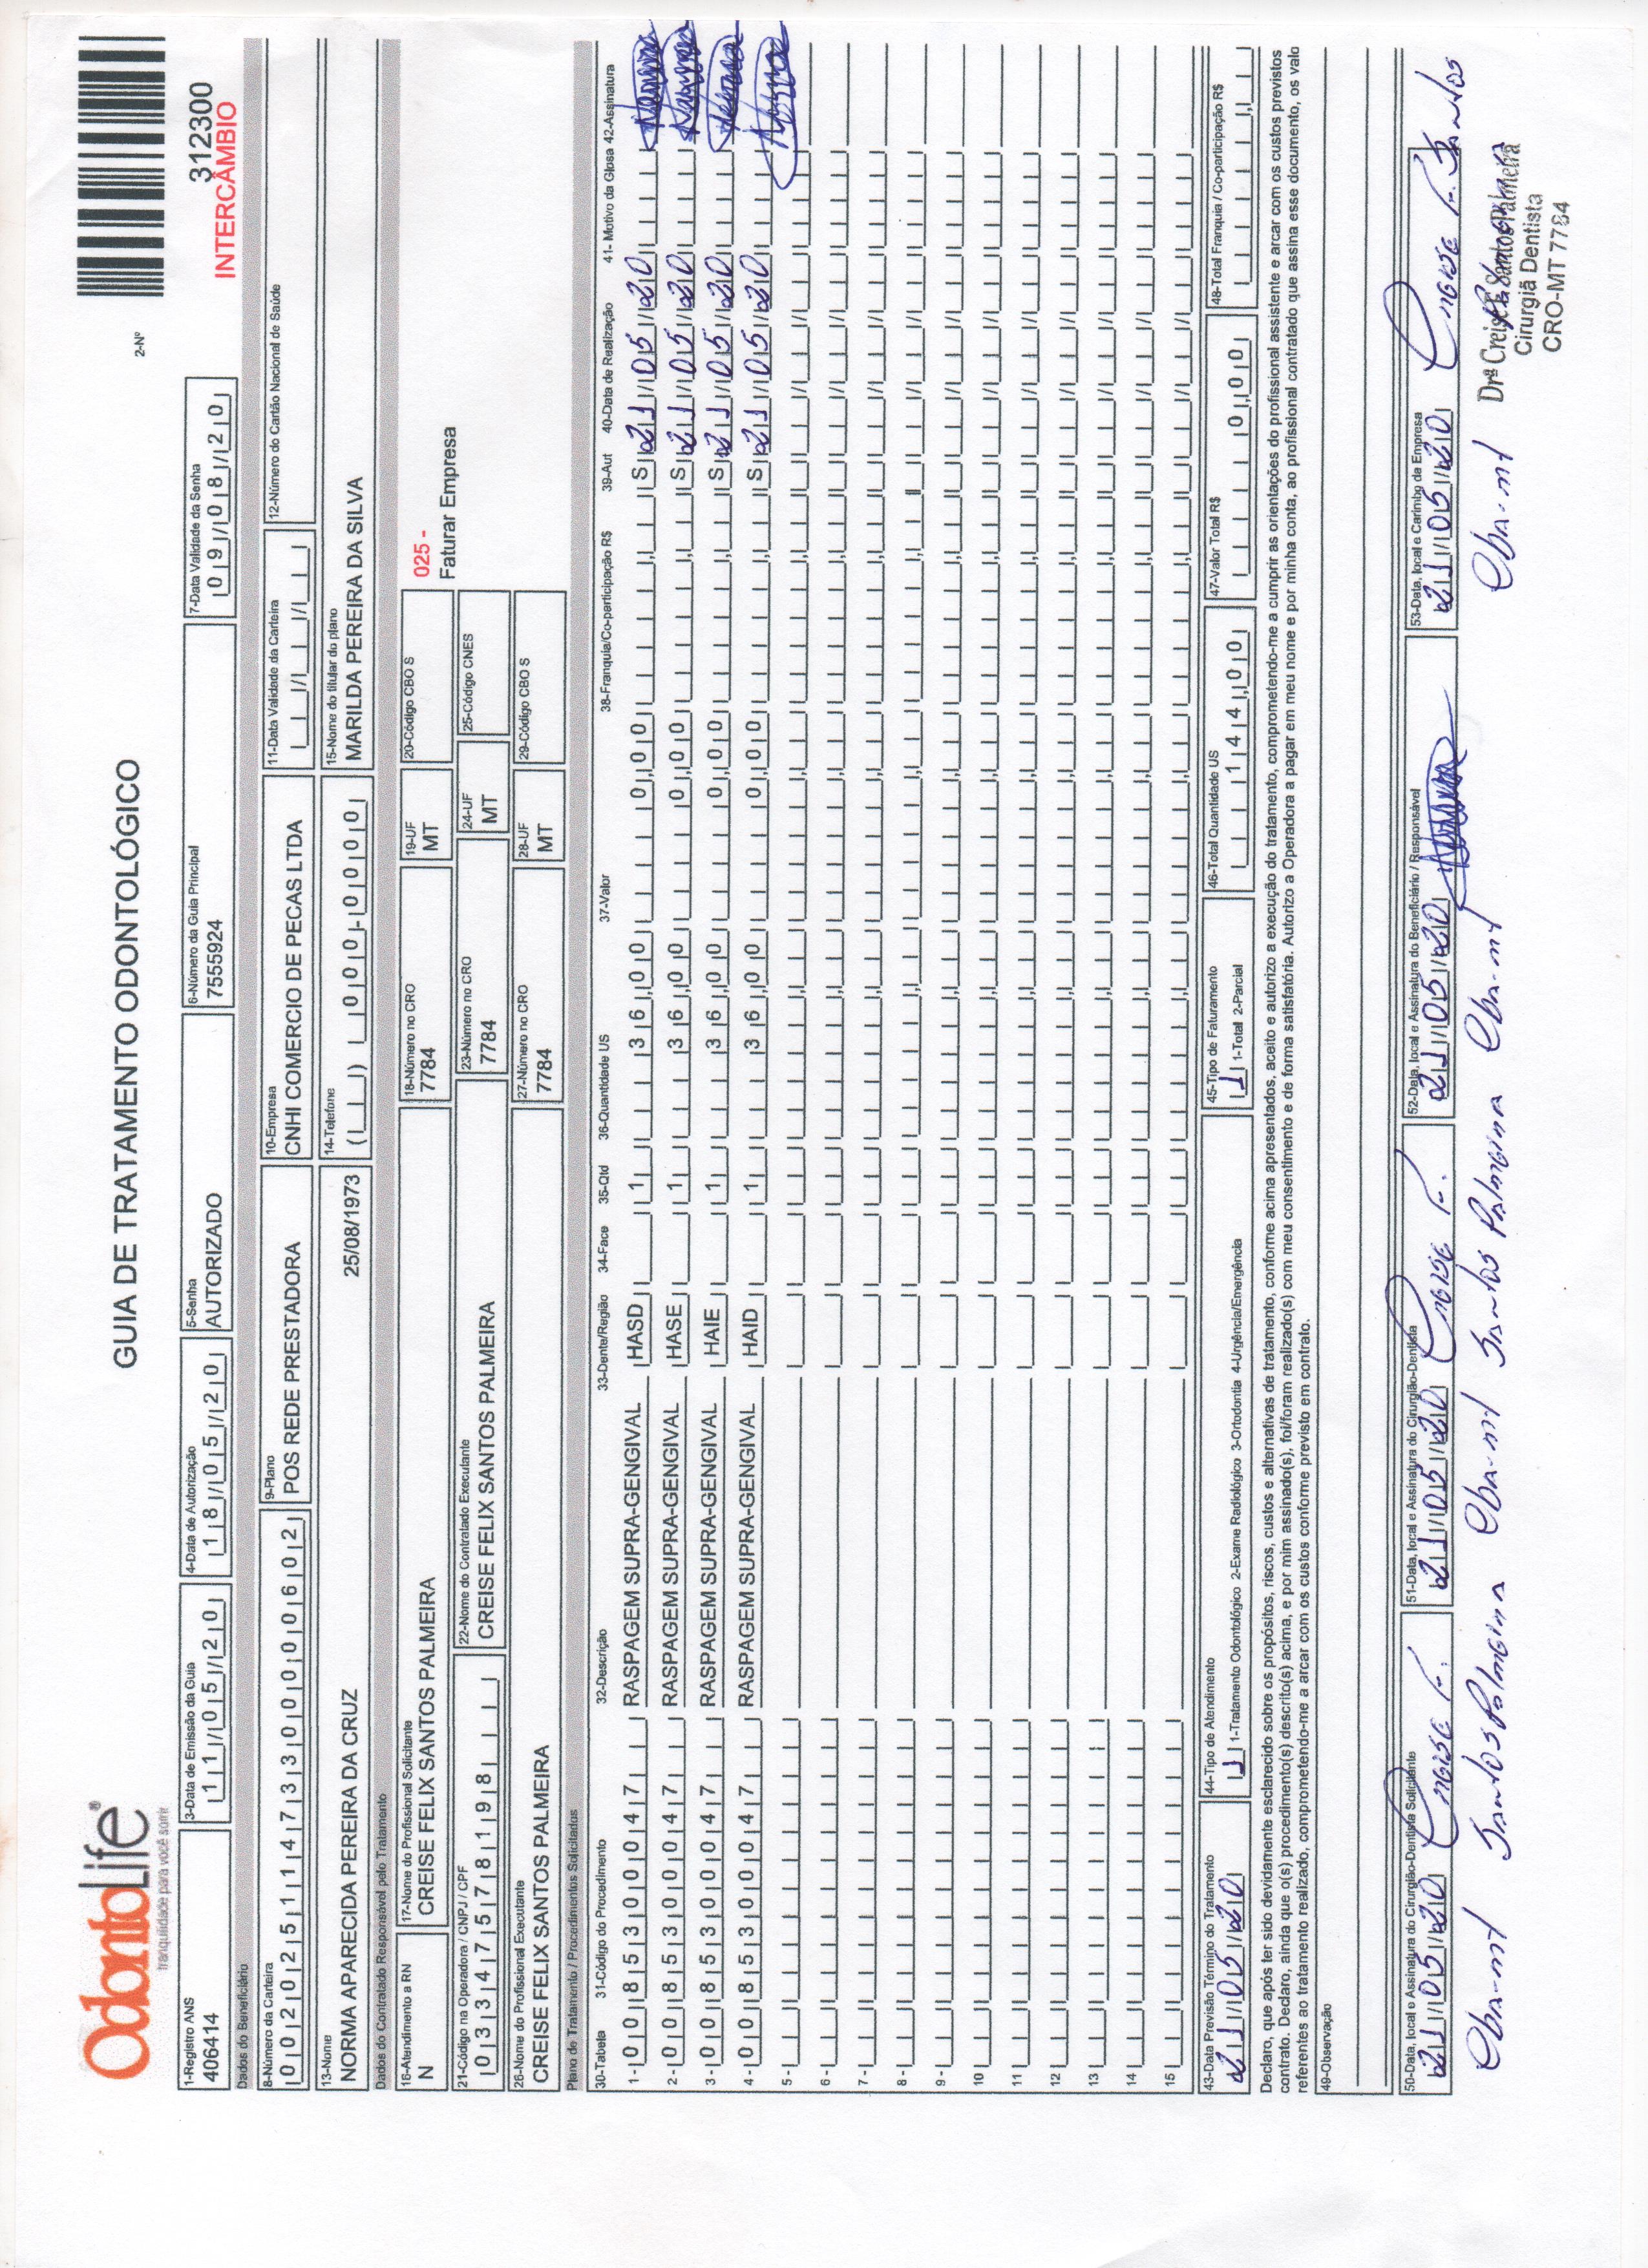 OdontoLife®
tranquilidade para você sorrir
GUIA DE TRATAMENTO ODONTOLÓGICO
2-Nº
312300
INTERCÂMBIO
1-Registro ANS 406414
3-Data de Emissão da Guia 11/05/20
4-Data de Autorização 18/05/20
5-Senha AUTORIZADO
6-Número da Guia Principal 7555924
7-Data Validade da Senha 09/08/20
Dados do Beneficiário
8-Número da Carteira 00202511473300000602
9-Plano POS REDE PRESTADORA
10-Empresa CNHI COMERCIO DE PECAS LTDA
11-Data Validade da Carteira
12-Número do Cartão Nacional de Saúde
13-Nome NORMA APARECIDA PEREIRA DA CRUZ 25/08/1973
14-Telefone ( ) 0000-00000
15-Nome do titular do plano MARILDA PEREIRA DA SILVA
Dados do Contratado Responsável pelo Tratamento
16-Atendimento a RN N
17-Nome do Profissional Solicitante CREISE FELIX SANTOS PALMEIRA
18-Número no CRO 7784
19-UF MT
20-Código CBO S
025 -
Faturar Empresa
21-Código na Operadora / CNPJ / CPF 03347578198
22-Nome do Contratado Executante CREISE FELIX SANTOS PALMEIRA
23-Número no CRO 7784
24-UF MT
25-Código CNES
26-Nome do Profissional Executante CREISE FELIX SANTOS PALMEIRA
27-Número no CRO 7784
28-UF MT
29-Código CBO S
Plano de Tratamento / Procedimentos Solicitados
30-Tabela 31-Código do Procedimento 32-Descrição 33-Dente/Região 34-Face 35-Qtd 36-Quantidade US 37-Valor 38-Franquia/Co-participação R$ 39-Aut 40-Data de Realização 41- Motivo da Glosa 42-Assinatura
1 - 00 85300047 RASPAGEM SUPRA-GENGIVAL HASD 1 36,00 0,00 S 21/05/20
2 - 00 85300047 RASPAGEM SUPRA-GENGIVAL HASE 1 36,00 0,00 S 21/05/20
3 - 00 85300047 RASPAGEM SUPRA-GENGIVAL HAIE 1 36,00 0,00 S 21/05/20
4 - 00 85300047 RASPAGEM SUPRA-GENGIVAL HAID 1 36,00 0,00 S 21/05/20
5 -
6 -
7 -
8 -
9 -
10
11
12
13
14
15
43-Data Previsão Término do Tratamento 21/05/20
44-Tipo de Atendimento 1 1-Tratamento Odontológico 2-Exame Radiológico 3-Ortodontia 4-Urgência/Emergência
45-Tipo de Faturamento 1 1-Total 2-Parcial
46-Total Quantidade US 144,00
47-Valor Total R$ 0,00
48-Total Franquia / Co-participação R$
Declaro, que após ter sido devidamente esclarecido sobre os propósitos, riscos, custos e alternativas de tratamento, conforme acima apresentados, aceito e autorizo a execução do tratamento, comprometendo-me a cumprir as orientações do profissional assistente e arcar com os custos previstos
contrato. Declaro, ainda que o(s) procedimento(s) descrito(s) acima, e por mim assinado(s), foi/foram realizado(s) com meu consentimento e de forma satisfatória. Autorizo a Operadora a pagar em meu nome e por minha conta, ao profissional contratado que assina esse documento, os valo
referentes ao tratamento realizado, comprometendo-me a arcar com os custos conforme previsto em contrato.
49-Observação
50-Data, local e Assinatura do Cirurgião-Dentista Solicitante 21/05/20 Creise F.
51-Data, local e Assinatura do Cirurgião-Dentista 21/05/20 Creise F.
52-Data, local e Assinatura do Beneficiário / Responsável 21/05/20
53-Data, local e Carimbo da Empresa 21/05/20 Creise F. Santos
Cba-mt Santos Palmeira Cba-mt Santos Palmeira Cba-mt Cba-mt Palmeira
Drª Creise F. Santos Palmeira
Cirurgiã Dentista
CRO-MT 7784